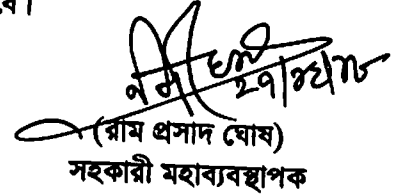 বে।
(রাম প্রসাদ ঘোষ)
সহকারী মহাব্যবস্থাপক